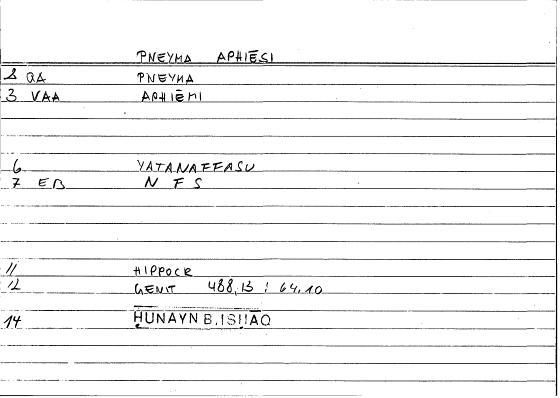 PNEYMA APHIĒSI
2 QA PNEYMA
3 VAA APHIĒMI
6 YATANAFFASU
7 EB N F S
11 HIPPOCR
12 GENIT 488,13 : 64,10
14 ḤUNAYN B.ISḤĀQ